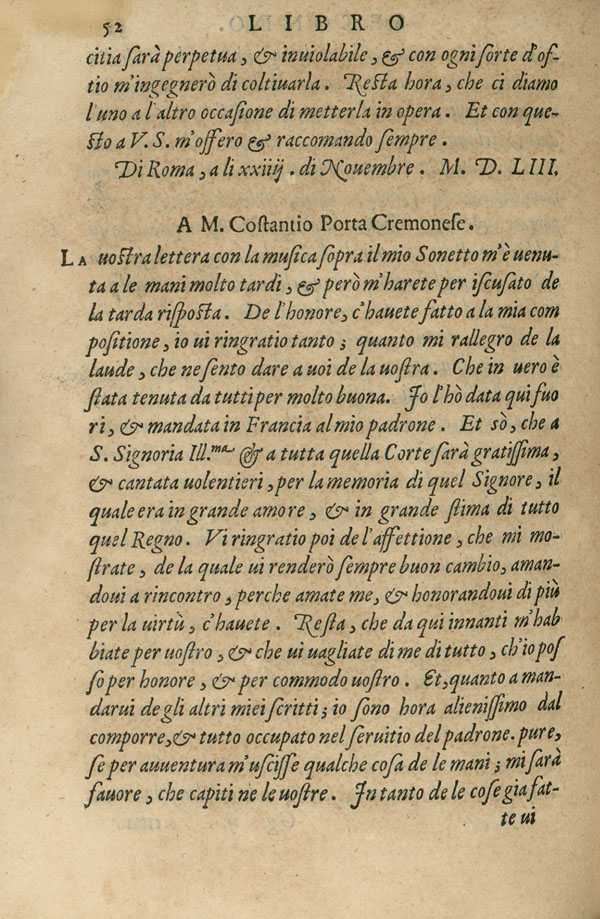 52 LIBRO
citia sarà perpetua, & inuiolabile, & con ogni sorte d'of-
tio m'ingegnerò di coltiuarla. Resta hora, che ci diamo
l'uno a l'altro occasione di metterla in opera. Et con que-
sto a V. S. m'offero & raccomando sempre.
Di Roma, a li xxiiij. di Nouembre. M. D. LIII.
A M. Costantio Porta Cremonese.
LA uostra lettera con la musica sopra il mio Sonetto m'è uenu-
ta a le mani molto tardi, & però m'harete per iscusato de
la tarda risposta. De l'honore, c'hauete fatto a la mia com
positione, io ui ringratio tanto; quanto mi rallegro de la
laude, che ne sento dare a uoi de la uostra. Che in uero è
stata tenuta da tutti per molto buona. Io l'hò data qui fuo
ri, & mandata in Francia al mio padrone. Et sò, che a
S. Signoria Ill.ma & a tutta quella Corte sarà gratissima,
& cantata uolentieri, per la memoria di quel Signore, il
quale era in grande amore, & in grande stima di tutto
quel Regno. Vi ringratio poi de l'affettione, che mi mo-
strate, de la quale ui renderò sempre buon cambio, aman-
doui a rincontro, perche amate me, & honorandoui di più
per la uirtù, c'hauete. Resta, che da qui innanti m'hab
biate per uostro, & che ui uagliate di me di tutto, ch'io pos
so per honore, & per commodo uostro. Et, quanto a man-
darui de gli altri miei scritti; io sono hora alienissimo dal
comporre, & tutto occupato nel seruitio del padrone. pure,
se per auuentura m'uscisse qualche cosa de le mani; mi sarà
fauore, che capiti ne le uostre. In tanto de le cose gia fat-
te ui